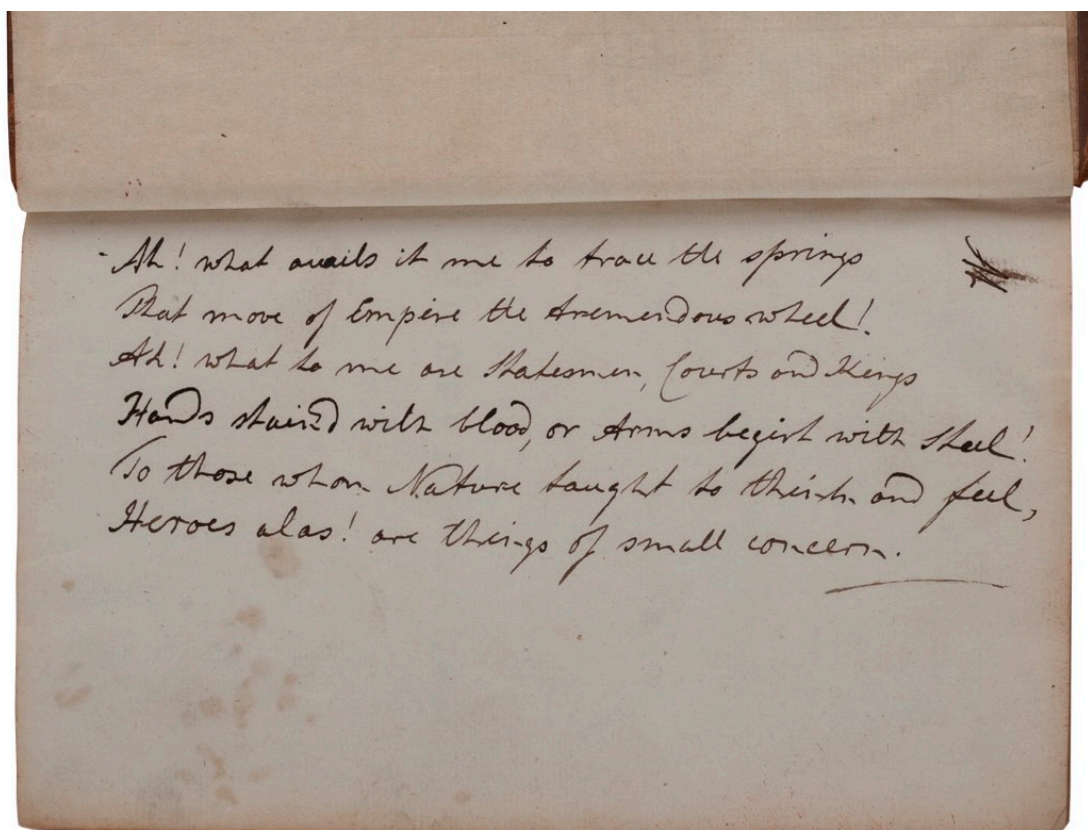 Ah! what avails it me to trace the springs
That move of Empire the tremendous wheel!
Ah! what to me are Statesmen, Courts and Kings
Hands stain'd with blood, or Arms begirt with Steel!
To those whom Nature taught to think and feel,
Heroes alas! are things of small concern.